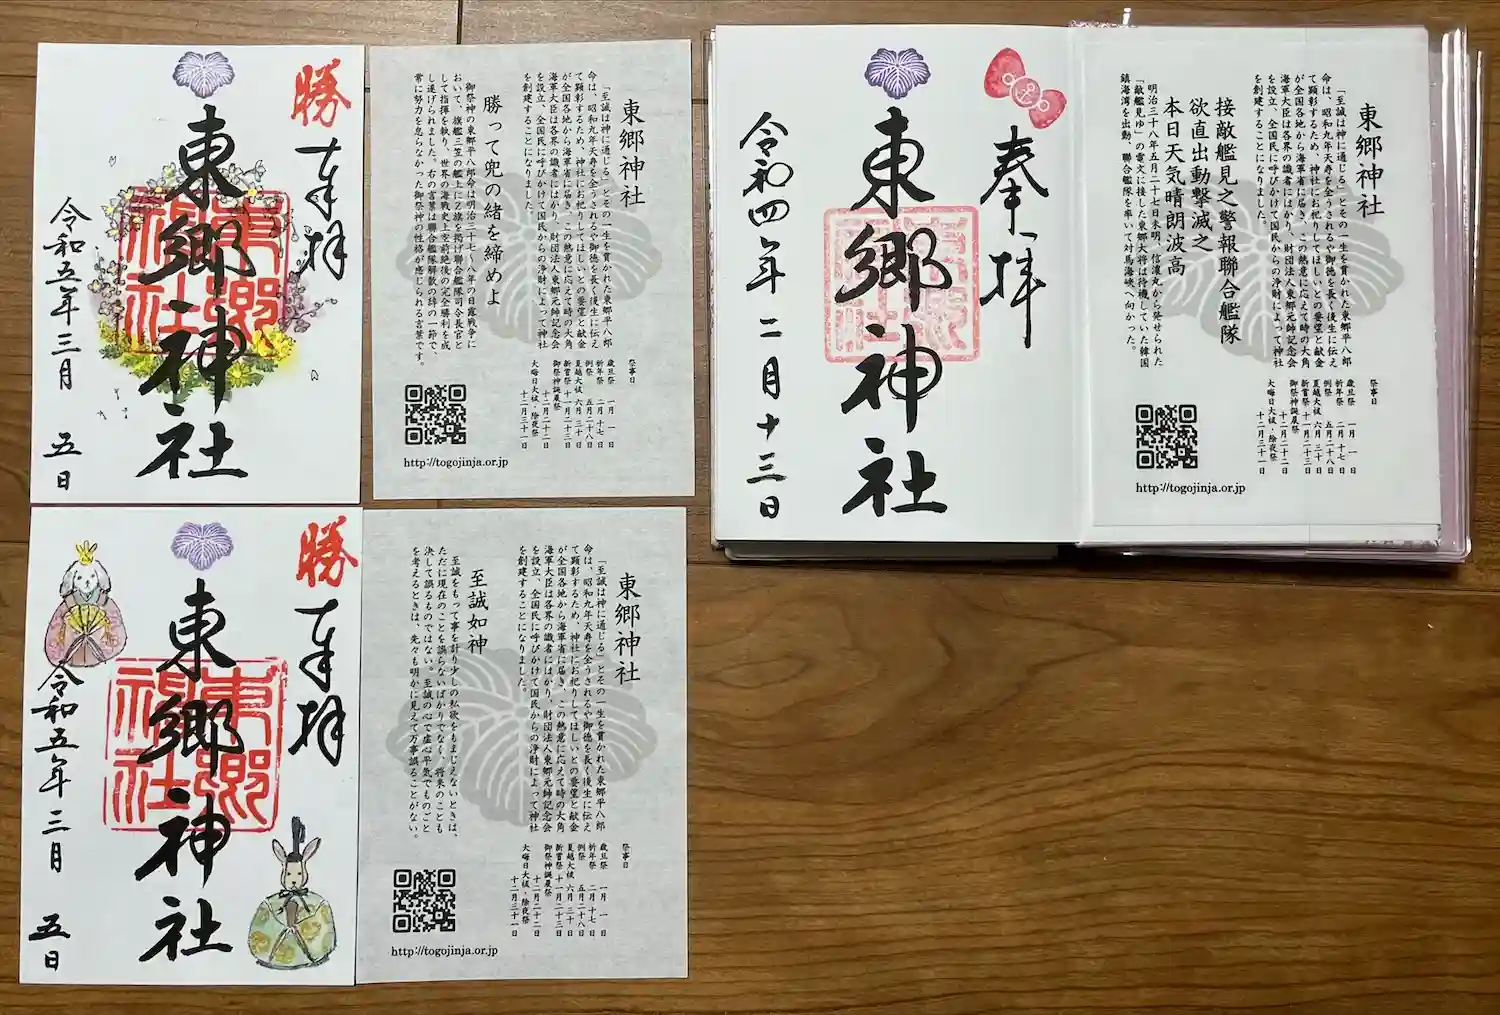 勝
奉拝
東郷神社
東郷神社
令和五年三月 五日
東郷神社
「至誠は神に通じる」とその一生を貫かれた東郷平八郎
命は、昭和九年天寿を全うされるや御徳を長く後生に伝え
て顕彰するため、神社にお祀りしてほしいとの要望と献金
が全国各地から海軍省に届き、この熱意に応えて時の大角
海軍大臣は各界の識者にはかり、財団法人東郷元帥記念会
を設立、全国民に呼びかけて国民からの浄財によって神社
を創建することになりました。
勝って兜の緒を締めよ
御祭神の東郷平八郎命は明治三十七~八年の日露戦争に
おいて、旗艦三笠の艦上にZ旗を掲げ聯合艦隊司令長官と
して指揮を執り、世界の海戦史上空前絶後の完全勝利を成
し遂げられました。右の言葉は聯合艦隊解散の辞の一節で、
常に努力を怠らなかった御祭神の性格が感じられる言葉です。
祭事日
歳旦祭 一月 一日
祈年祭 二月 十七日
例祭 五月二十八日
夏越大祓 六月 三十日
新嘗祭 十一月二十三日
御祭神誕辰祭
十二月二十二日
大晦日大祓・除夜祭
十二月三十一日
http://togojinja.or.jp
勝
奉拝
東郷神社
東郷神社
令和五年三月 五日
東郷神社
「至誠は神に通じる」とその一生を貫かれた東郷平八郎
命は、昭和九年天寿を全うされるや御徳を長く後生に伝え
て顕彰するため、神社にお祀りしてほしいとの要望と献金
が全国各地から海軍省に届き、この熱意に応えて時の大角
海軍大臣は各界の識者にはかり、財団法人東郷元帥記念会
を設立、全国民に呼びかけて国民からの浄財によって神社
を創建することになりました。
至誠如神
至誠をもって事を計り少しの私欲をもまじえないときは、
ただに現在のことを誤らないばかりでなく、将来のことも
決して誤るものではない。至誠の心で虚心平気でものごと
を考えるときは、先々も明かに見えて万事誤ることがない。
祭事日
歳旦祭 一月 一日
祈年祭 二月 十七日
例祭 五月二十八日
夏越大祓 六月 三十日
新嘗祭 十一月二十三日
御祭神誕辰祭
十二月二十二日
大晦日大祓・除夜祭
十二月三十一日
http://togojinja.or.jp
奉拝
東郷神社
東郷神社
令和四年 二月 十三日
東郷神社
「至誠は神に通じる」とその一生を貫かれた東郷平八郎
命は、昭和九年天寿を全うされるや御徳を長く後生に伝え
て顕彰するため、神社にお祀りしてほしいとの要望と献金
が全国各地から海軍省に届き、この熱意に応えて時の大角
海軍大臣は各界の識者にはかり、財団法人東郷元帥記念会
を設立、全国民に呼びかけて国民からの浄財によって神社
を創建することになりました。
接敵艦見之警報聯合艦隊
欲直出動撃滅之
本日天気晴朗波高
明治三十八年五月二十七日未明、信濃丸から発せられた
「敵艦見ゆ」の電文に接した東郷大将は待機していた韓国
鎮海湾を出動、聯合艦隊を率いて対馬海峡へ向かった。
祭事日
歳旦祭 一月 一日
祈年祭 二月 十七日
例祭 五月二十八日
夏越大祓 六月 三十日
新嘗祭 十一月二十三日
御祭神誕辰祭
十二月二十二日
大晦日大祓・除夜祭
十二月三十一日
http://togojinja.or.jp